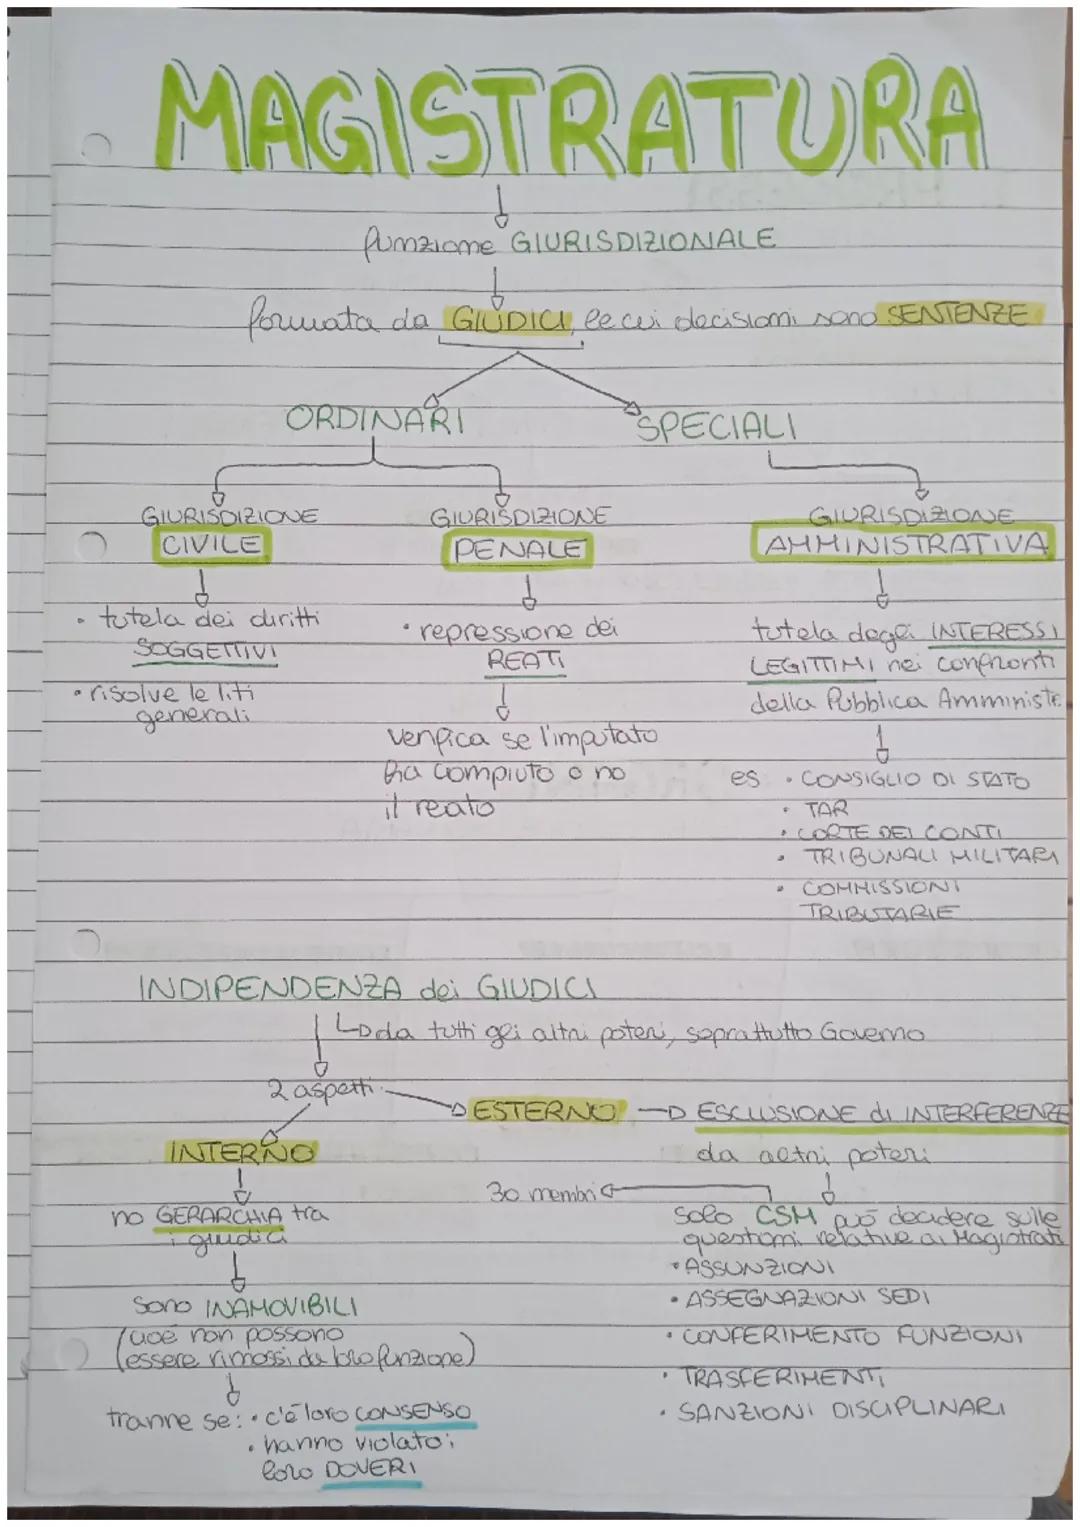 MAGISTRATURA
funzione GIURISDIZIONALE
formata da GIUDICI, le cui decisioni sono SENTENZE
ORDINARI
SPECIALI
GIURISDIZIONE
CIVILE
GIURISDIZIONE
PENALE
GIURISDIZIONE
AMMINISTRATIVA
• tutela dei diritti
SOGGETTIVI
• risolve le liti
generali
• repressione dei
REATI
verifica se l'imputato
ha compiuto o no
il reato
tutela degli INTERESSI
LEGITTIMI nei confronti
della Pubblica Amministr.
es • CONSIGLIO DI STATO
• TAR
• CORTE DEI CONTI
• TRIBUNALI MILITARI
• COMMISSIONI
TRIBUTARIE
INDIPENDENZA dei GIUDICI
da tutti gli altri poteri, soprattutto Governo
2 aspetti
ESTERNO
ESCLUSIONE di INTERFERENZE
da altri poteri
INTERNO
no GERARCHIA tra
i giudici
sono INAMOVIBILI
(cioè non possono
essere rimossi da loro funzione)
tranne se: • c'è loro CONSENSO
• hanno violato i
loro DOVERI
30 membri
solo CSM può decidere sulle
questioni relative ai Magistrati
• ASSUNZIONI
• ASSEGNAZIONI SEDI
• CONFERIMENTO FUNZIONI
• TRASFERIMENTI
• SANZIONI DISCIPLINARI